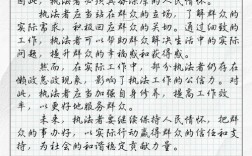 执法者必须具备深厚的人民情怀。
执法者应当站在群众的立场,了解群众的
实际需求,积极回应群众的关切。通过细致的
工作,执法者可以帮助群众解决生活中的实际
问题,提升群众的幸福感和获得感。
然而,在实际工作中,部分执法者仍存在
懒政怠政现象,影响了执法工作的公信力。对
此,执法者应当加强自身修养,提高工作效
率,以更好地服务群众。
未来,执法者要继续保持人民情怀,把群
众的事办好,以实际行动赢得群众的信任和支
持,为社会的和谐稳定贡献力量。